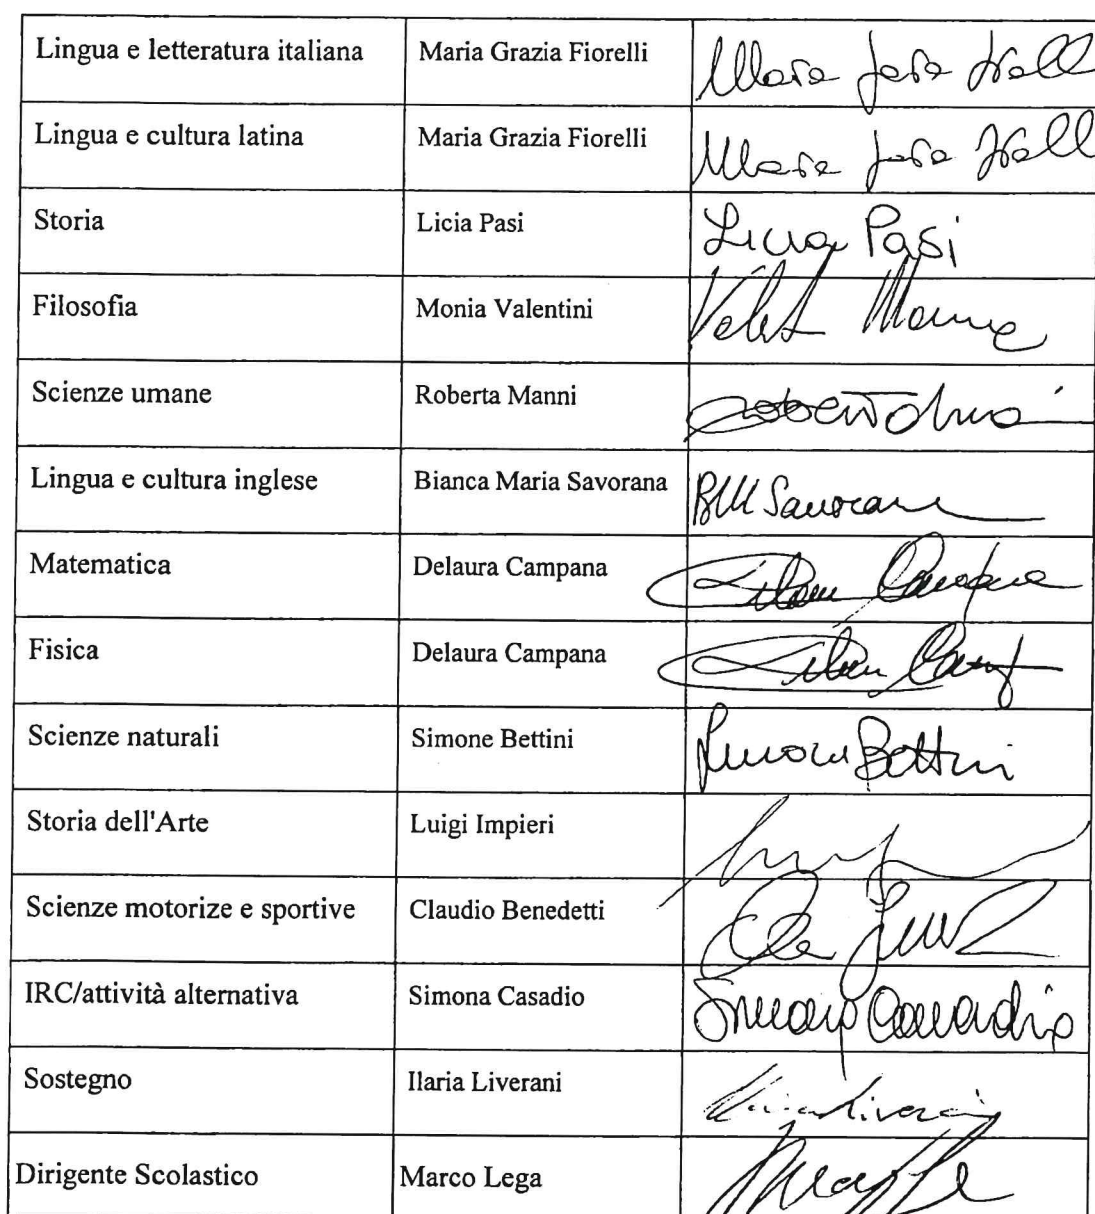 Lingua e letteratura italiana Maria Grazia Fiorelli
Lingua e cultura latina Maria Grazia Fiorelli
Storia Licia Pasi Licia Pasi
Filosofia Monia Valentini
Scienze umane Roberta Manni
Lingua e cultura inglese Bianca Maria Savorana BM Savorana
Matematica Delaura Campana
Fisica Delaura Campana
Scienze naturali Simone Bettini Simone Bettini
Storia dell'Arte Luigi Impieri
Scienze motorize e sportive Claudio Benedetti
IRC/attività alternativa Simona Casadio Simona Casadio
Sostegno Ilaria Liverani Ilaria Liverani
Dirigente Scolastico Marco Lega